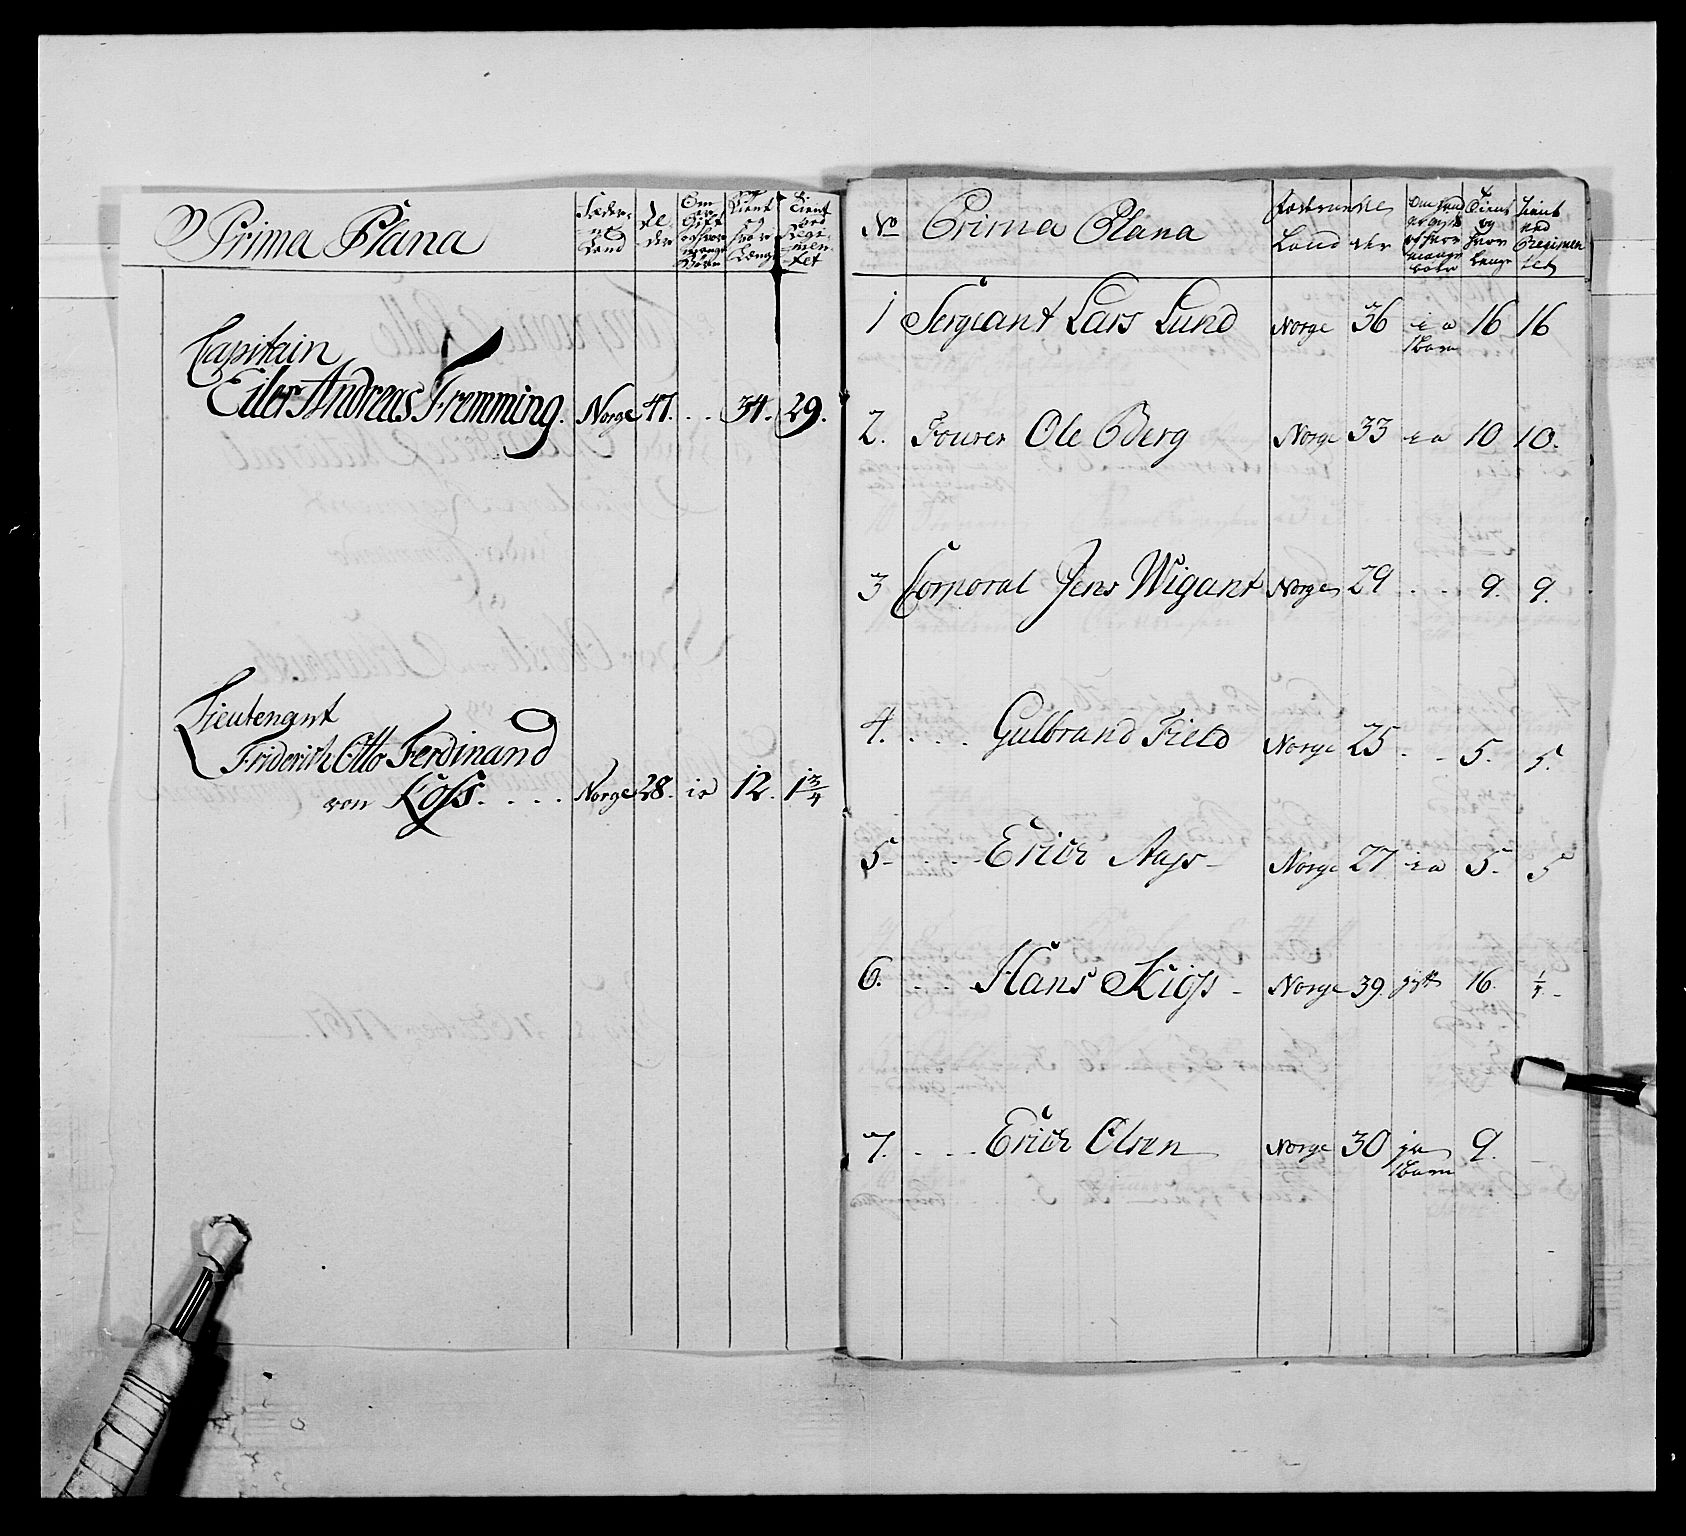 Prima Plana
Fæder-
ne
Land
Al
der
Om
Gift
og hvor
mange
Børn
Tient
og
hvor
Længe
Tient
ved
Regi-
men-
tet
Capitain
Eiler Andreas Fremming. Norge 47. . . 34. 29.
Lieutenant
Friderich Otto Ferdinand
von Koss. . . . . Norge 28. ia 12. 1 3/4
No Prima Plana
Land
der
og hvor
mange
børn
Tient
og
hvor
længe
Tient
ved
Regimen
tet
1 Sergeant Lars Lund Norge 36 ia 16 16
1 barn
2. Fourer Ole Berg Norge 33 ia 10 10.
3 Corporal Jens Wigant Norge 29 . . 9. 9.
4. . . . Gulbrand Field Norge 25 . . 5. 5.
5 . . . Erich Aass Norge 27 ia 5. 5
6. . . . Hans Kioss Norge 39. 16. 1/4
7. . . . Erich Olsen Norge 30 ja 9. -
1 barn